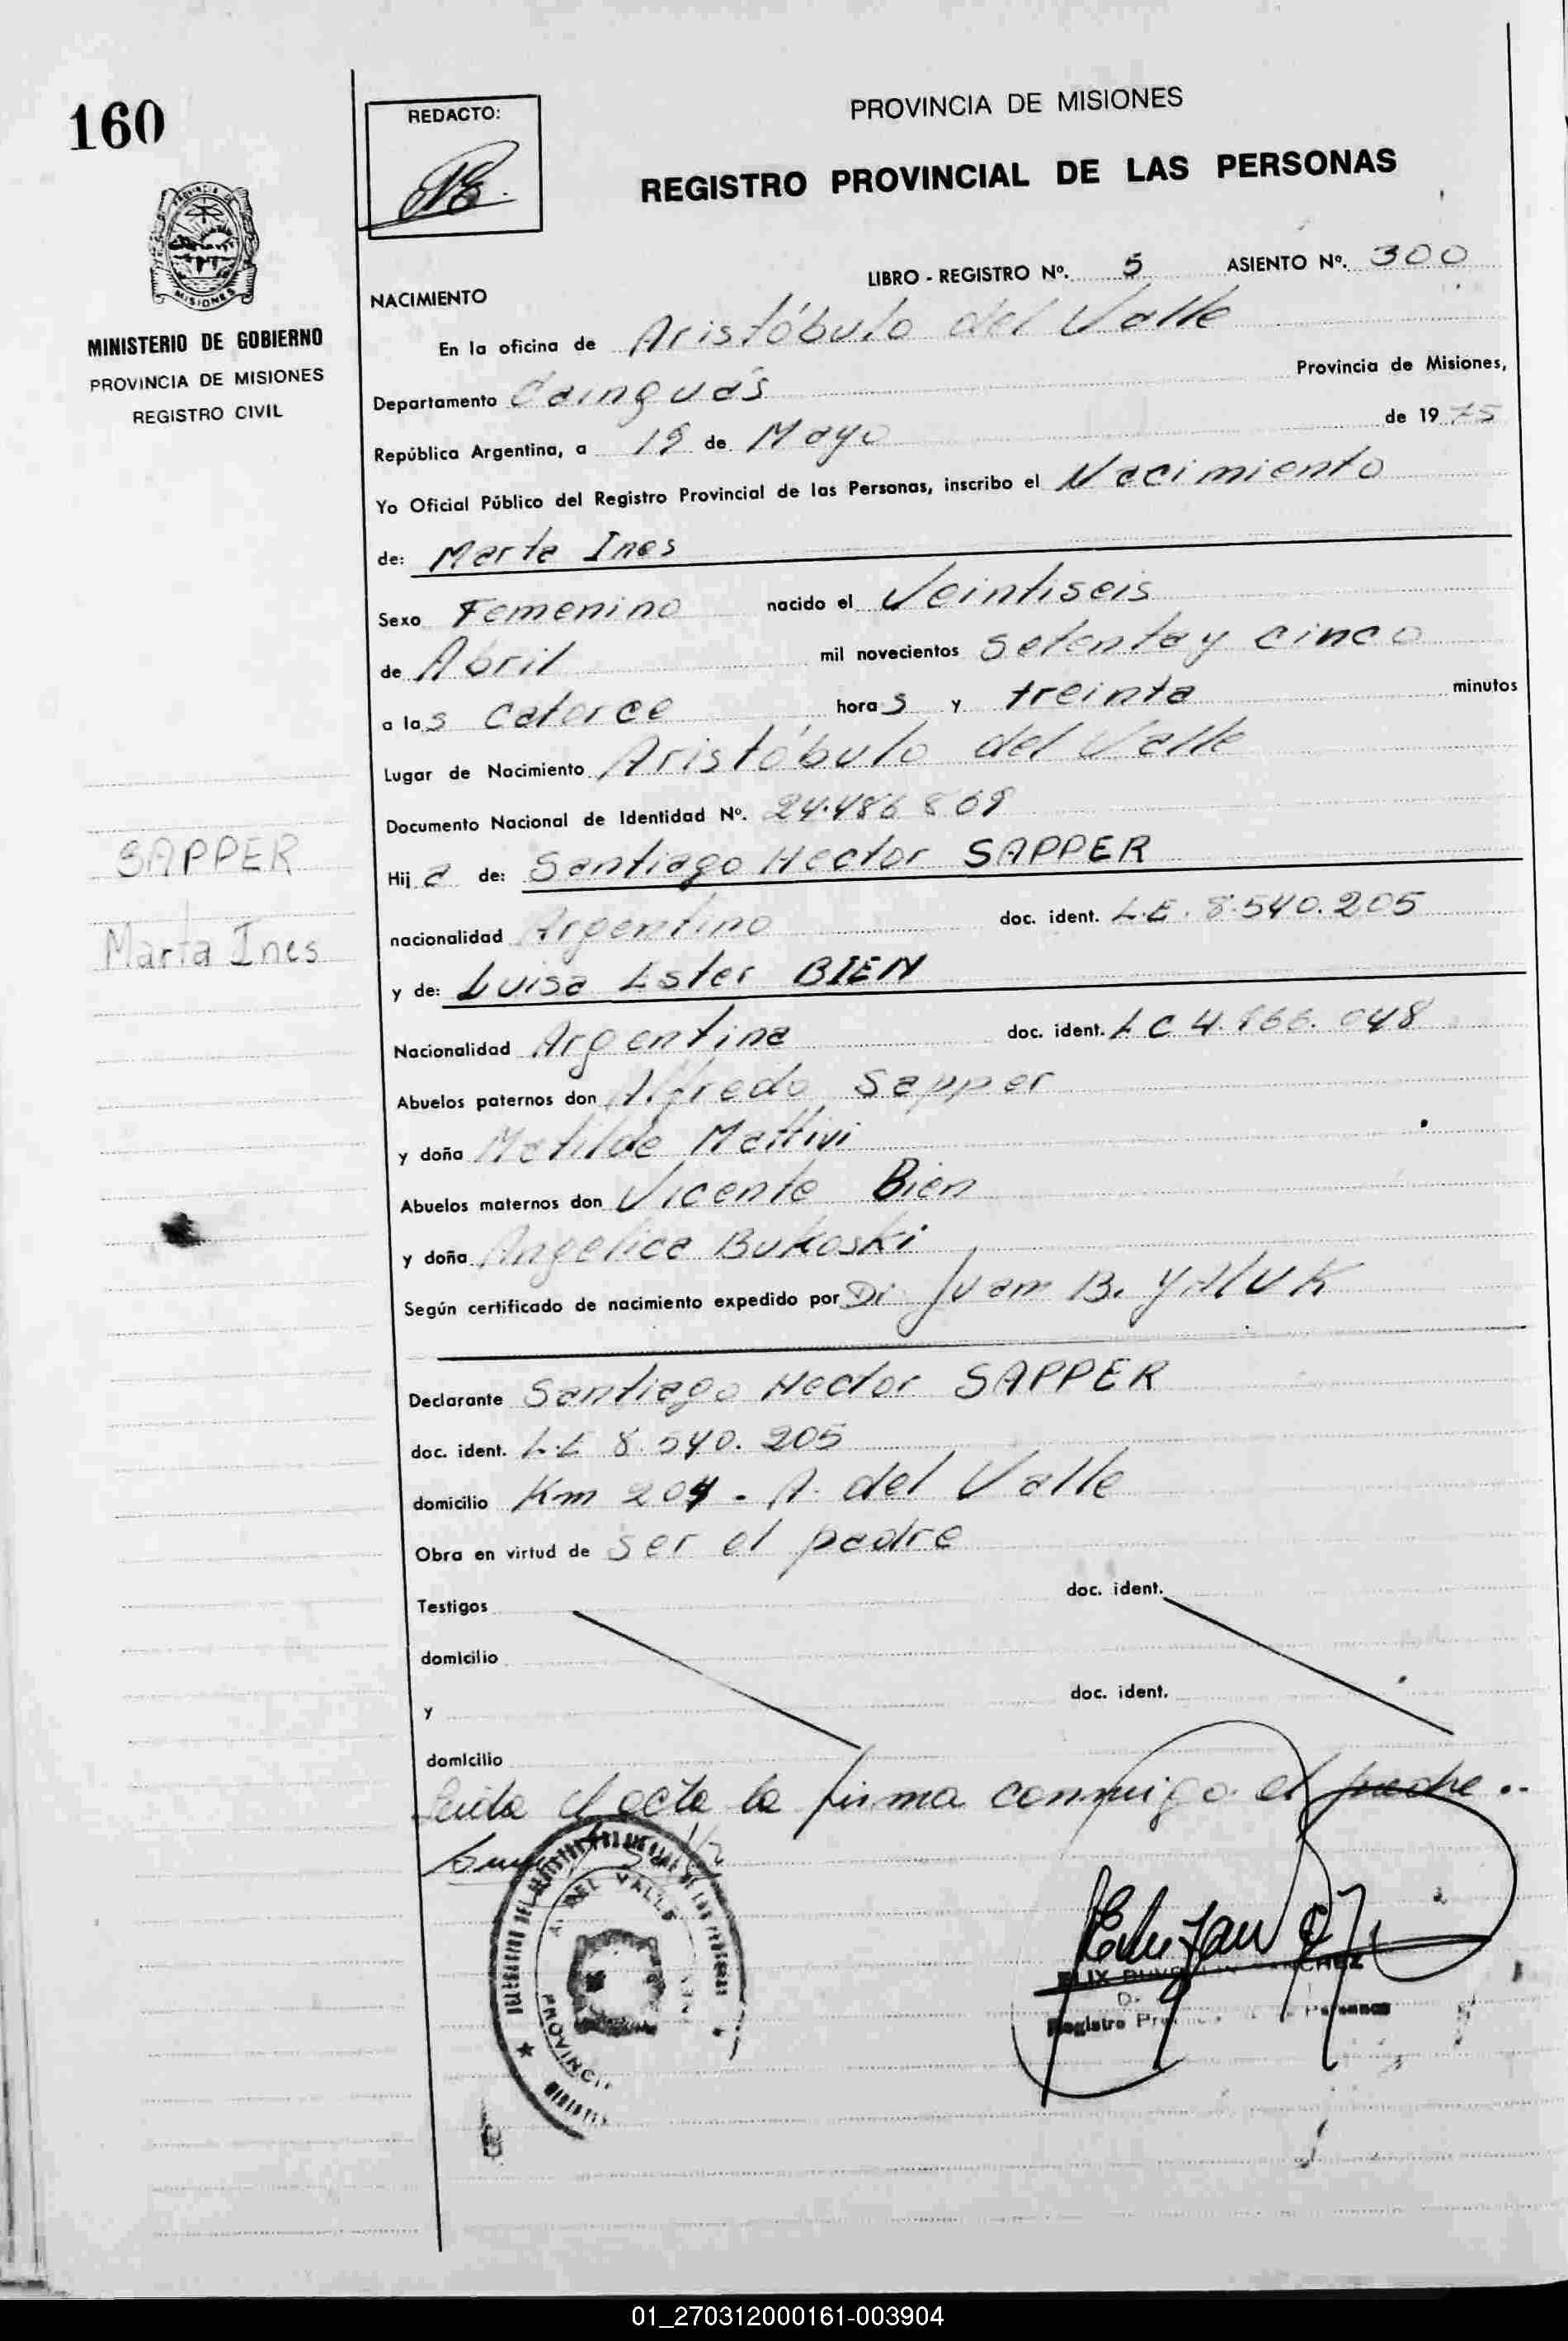 160
REDACTO:
PROVINCIA DE MISIONES
REGISTRO PROVINCIAL DE LAS PERSONAS
MISIONES
MINISTERIO DE GOBIERNO
PROVINCIA DE MISIONES
REGISTRO CIVIL
LIBRO - REGISTRO Nº. 5 ASIENTO Nº. 300
NACIMIENTO
En la oficina de Aristóbulo del Valle
Departamento Cainguás Provincia de Misiones,
República Argentina, a 19 de Mayo de 1975
Yo Oficial Público del Registro Provincial de las Personas, inscribo el Nacimiento
de: Marta Ines
Sexo Femenino nacido el Veintiseis
de Abril mil novecientos Setenta y cinco
a las catorce horas y treinta minutos
Lugar de Nacimiento Aristóbulo del Valle
Documento Nacional de Identidad Nº. 24.486.869
SAPPER
Marta Ines
Hija de: Santiago Hector SAPPER
nacionalidad Argentino doc. ident. L.E. 8.540.205
y de: Luisa Ester BIEN
Nacionalidad Argentina doc. ident. L C 4.966.048
Abuelos paternos don Alfredo Sapper
y doña Matilde Mattivi
Abuelos maternos don Vicente Bien
y doña Angelica Bukoski
Según certificado de nacimiento expedido por Dr. Juam B. YALUK
Declarante Santiago Hector SAPPER
doc. ident. L.E 8.540.205
domicilio Km 204 - A. del Valle
Obra en virtud de ser el padre
Testigos doc. ident.
domicilio
y doc. ident.
domicilio
Leida el acta la firma conmigo el padre..
A. DEL VALLE
PROVINCI
SANCHEZ
Registro
01_270312000161-003904